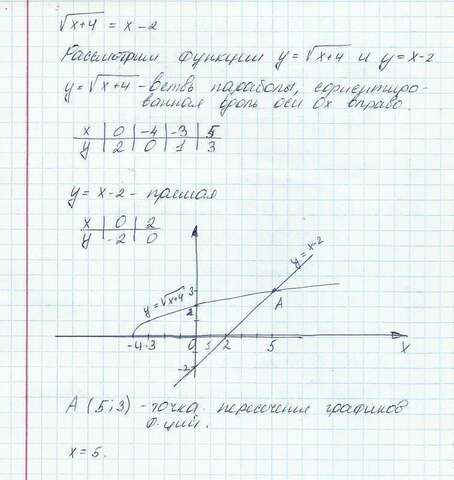 √x+4 = x-2
Рассмотрим функции y=√x+4 и y=x-2
y=√x+4 - ветвь параболы, сориентиро-
ванная вдоль оси Ox вправо.
x 0 -4 -3 5
y 2 0 1 3
y= x-2 - прямая
x 0 2
y -2 0
y=x-2
y=√x+4
3
2
A
-4 -3 0 1 2 5 x
-2
A (5;3) - точка пересечения графиков
ф-ций.
x=5.